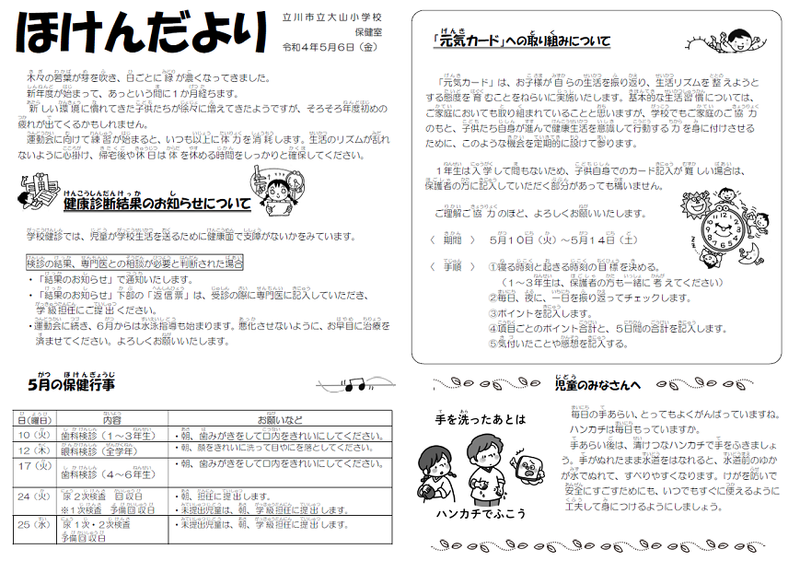 ほけんだより
立川市立大山小学校
保健室
令和４年５月６日（金）
木々の若葉が芽を吹き、日ごとに緑が濃くなってきました。
新年度が始まって、あっという間に１か月経ちます。
新しい環境に慣れてきた子供たちが徐々に増えてきたようですが、そろそろ年度初めの
疲れが出てくるかもしれません。
運動会に向けて練習が始まると、いつも以上に体力を消耗します。生活のリズムが乱れ
ないように心掛け、帰宅後や休日は体を休める時間をしっかりと確保してください。
健康診断結果のお知らせについて
学校健診では、児童が学校生活を送るために健康面で支障がないかをみています。
検診の結果、専門医との相談が必要と判断された場合
・「結果のお知らせ」で通知いたします。
・「結果のお知らせ」下部の「返信票」は、受診の際に専門医に記入していただき、
学級担任にご提出ください。
・運動会に続き、６月からは水泳指導も始まります。悪化させないように、お早目に治療を
済ませてください。よろしくお願いいたします。
５月の保健行事
日（曜日） 内容 お願いなど
10（火） 歯科検診（１～３年生） ・朝、歯みがきをして口内をきれいにしてください。
12（木） 眼科検診（全学年） ・朝、顔をきれいに洗って目やにを落としてください。
17（火） 歯科検診（４～６年生） ・朝、歯みがきをして口内をきれいにしてください。
24（火） 尿２次検査 回収日 ・朝、担任に提出します。
※１次検査 予備回収日 ・未提出児童は、朝、学級担任に提出します。
25（水） 尿１次・２次検査 ・未提出児童は、朝、学級担任に提出します。
予備回収日
「元気カード」への取り組みについて
「元気カード」は、お子様が自らの生活を振り返り、生活リズムを整えようと
する態度を育むことをねらいに実施いたします。基本的な生活習慣については、
ご家庭においても取り組まれていることと思いますが、学校でもご家庭のご協力
のもと、子供たち自身が進んで健康生活を意識して行動する力を身に付けさせる
ために、このような機会を定期的に設けて参ります。
１年生は入学して間もないため、子供自身でのカード記入が難しい場合は、
保護者の方に記入していただく部分があっても構いません。
ご理解ご協力のほど、よろしくお願いいたします。
〈 期間 〉 ５月１０日（火）～５月１４日（土）
〈 手順 〉 ①寝る時刻と起きる時刻の目標を決める。
（１～３年生は、保護者の方も一緒に考えてください）
②毎日、夜に、一日を振り返ってチェックします。
③ポイントを記入します。
④項目ごとのポイント合計と、５日間の合計を記入します。
⑤気付いたことや感想を記入する。
児童のみなさんへ
手を洗ったあとは
ハンカチでふこう
毎日の手あらい、とってもよくがんばっていますね。
ハンカチは毎日もっていますか。
手あらい後は、清けつなハンカチで手をふきましょ
う。手がぬれたまま水道をはなれると、水道前のゆか
が水でぬれて、すべりやすくなります。けがを防いで
安全にすごすためにも、いつでもすぐに使えるように
工夫して身につけるようにしましょう。